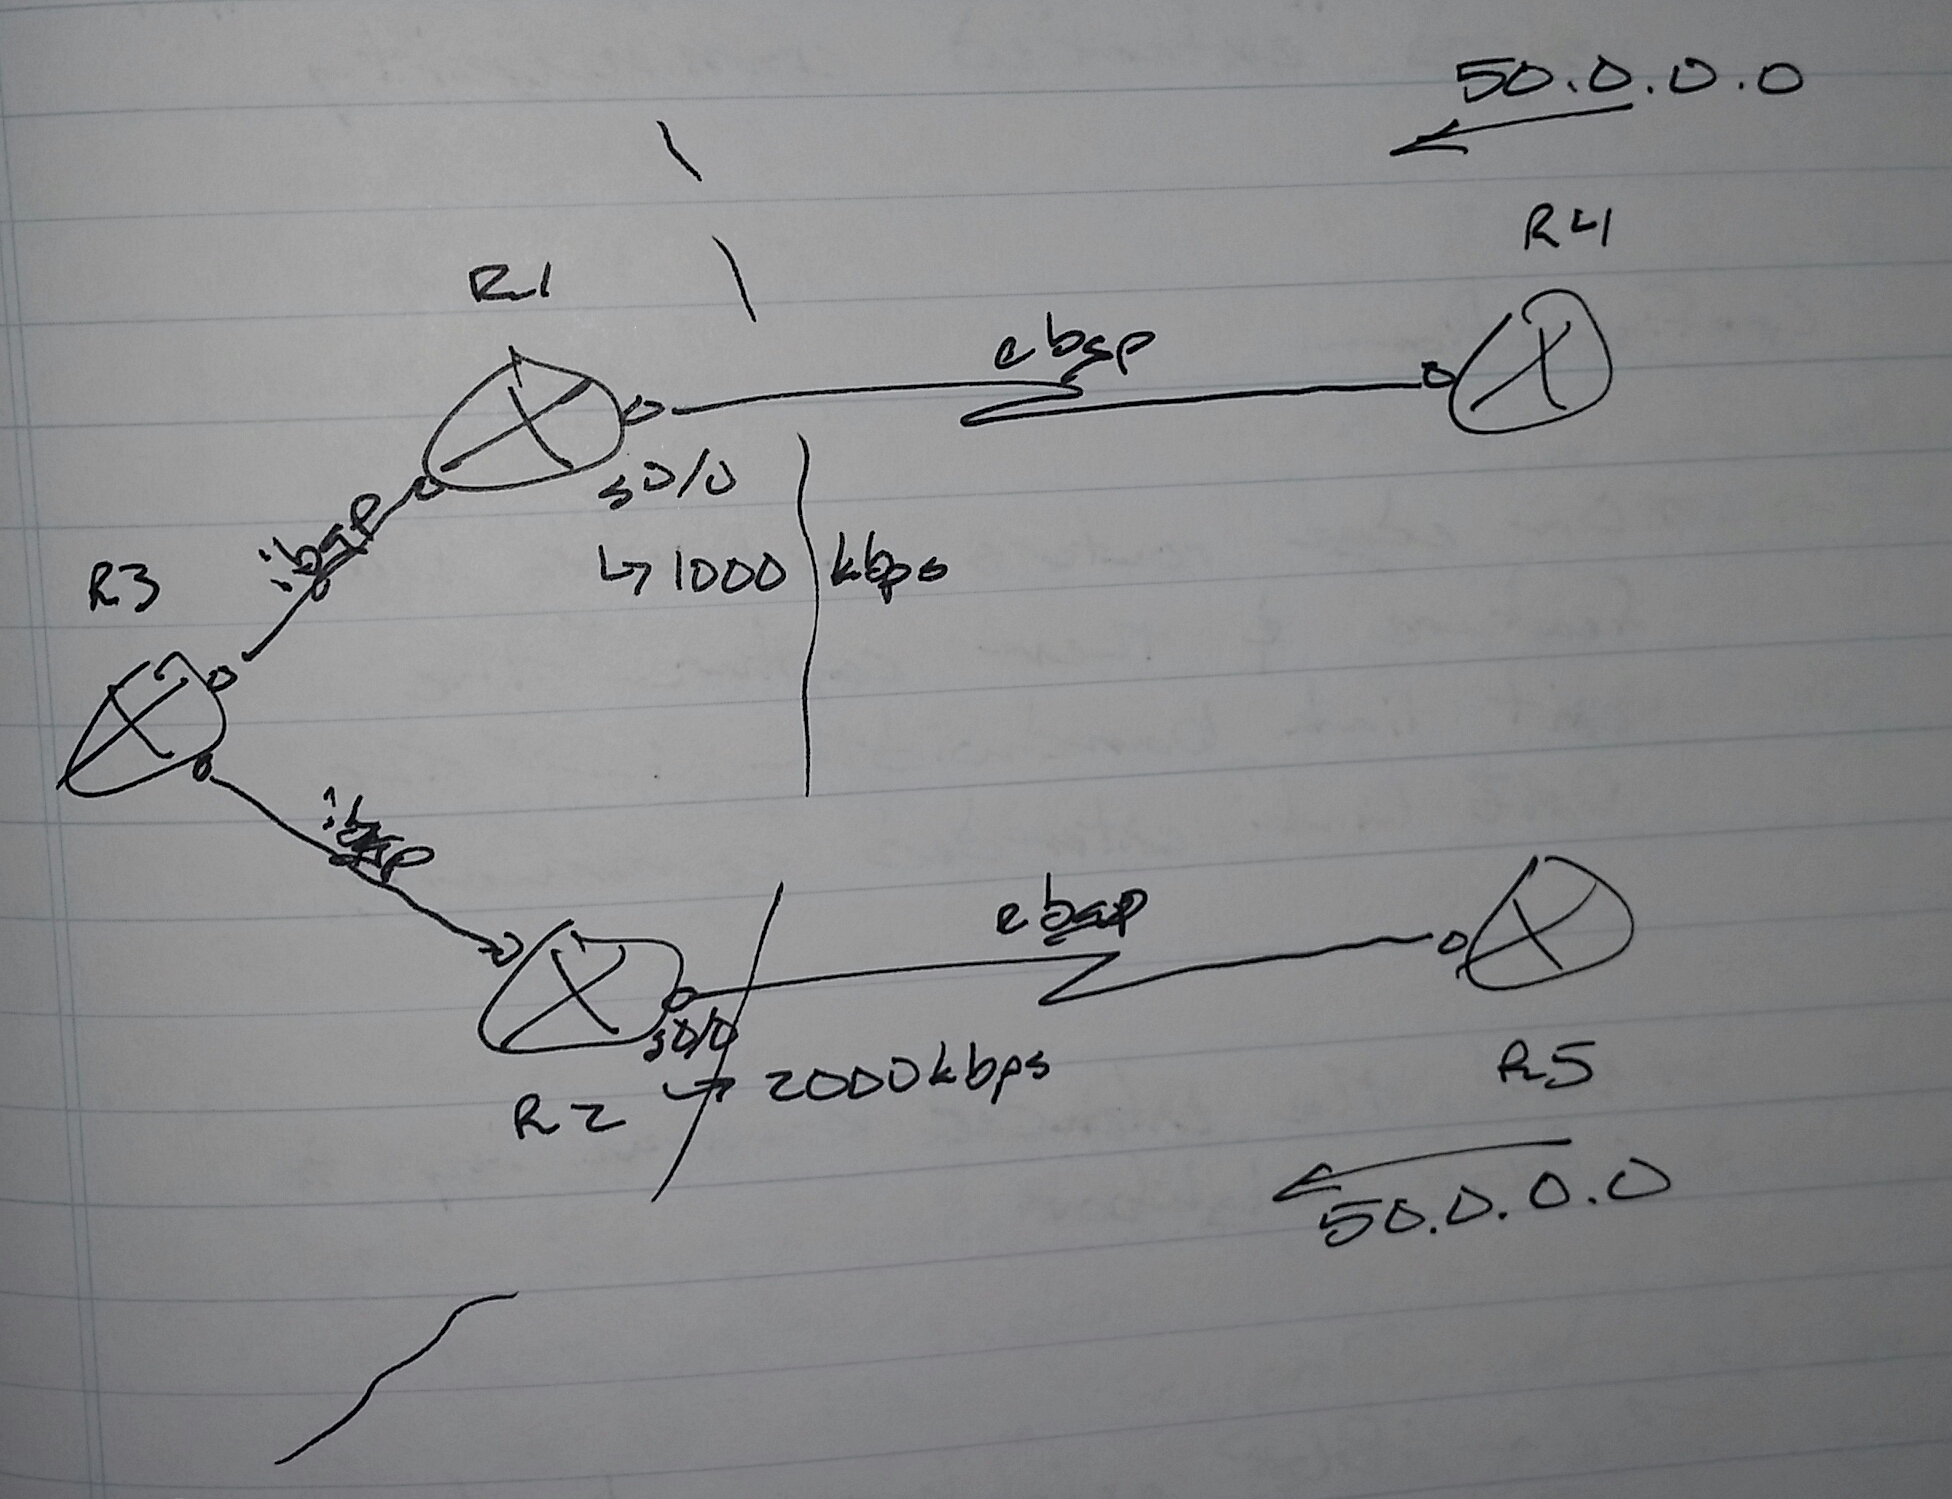 50.0.0.0
R4
R1
ebgp
s0/0
↳ 1000 kbps
ibgp
R3
ibgp
ebgp
s0/0
↳ 2000kbps
R2
R5
50.0.0.0